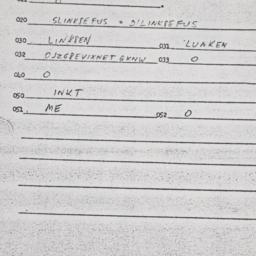 020 SLINKSEFUS = D'LINKSEFUS
030 LINKSEN 031 'LUAKEN
032 033 O
040 O
050 INKT
051 ME 052 O